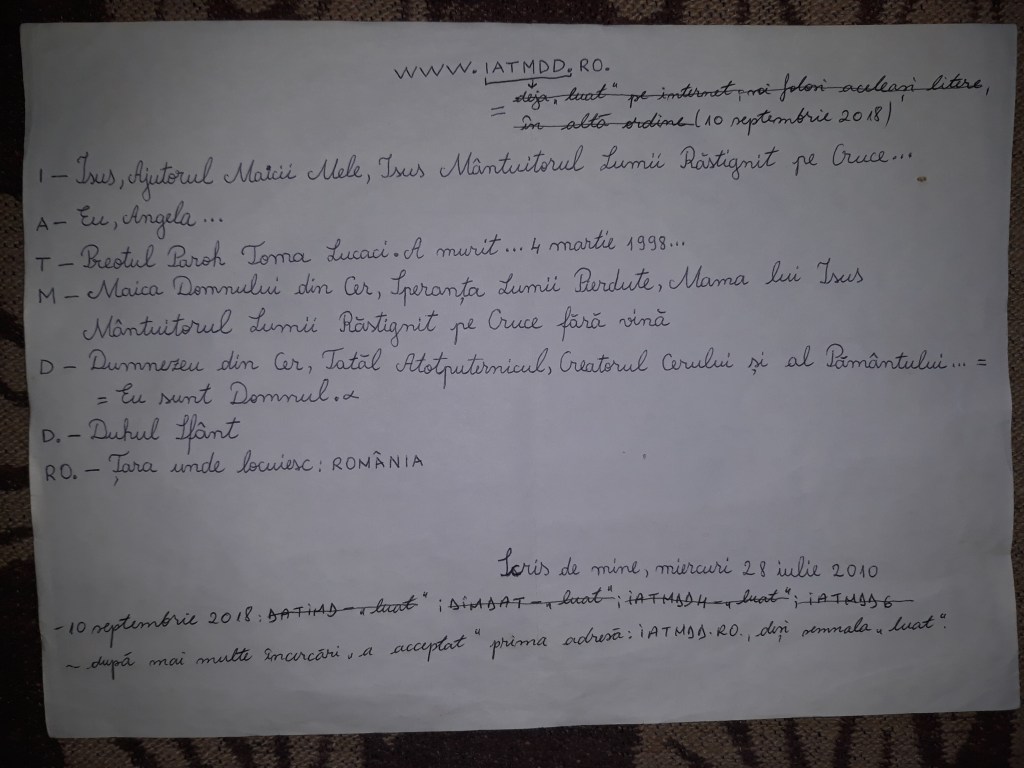 WWW.IATMDD.RO.
= deja „luat" pe internet, voi folosi aceleași litere,
în altă ordine (10 septembrie 2018)
I – Isus, Ajutorul Maicii Mele, Isus Mântuitorul Lumii Răstignit pe Cruce...
A – Eu, Angela...
T – Preotul Paroh Toma Lucaci. A murit... 4 martie 1998...
M – Maica Domnului din Cer, Speranța Lumii Pierdute, Mama lui Isus
Mântuitorul Lumii Răstignit pe Cruce fără vină
D – Dumnezeu din Cer, Tatăl Atotputernicul, Creatorul Cerului și al Pământului... =
= Eu sunt Domnul.
D. – Duhul Sfânt
RO. – Țara unde locuiesc: ROMÂNIA
Scris de mine, miercuri 28 iulie 2010
– 10 septembrie 2018: DATIMD – „luat"; DIMDAT – „luat"; IATMDD4 – „luat"; IATMDD6
~ după mai multe încercări „a acceptat" prima adresă: IATMDD.RO., deși semnala „luat".